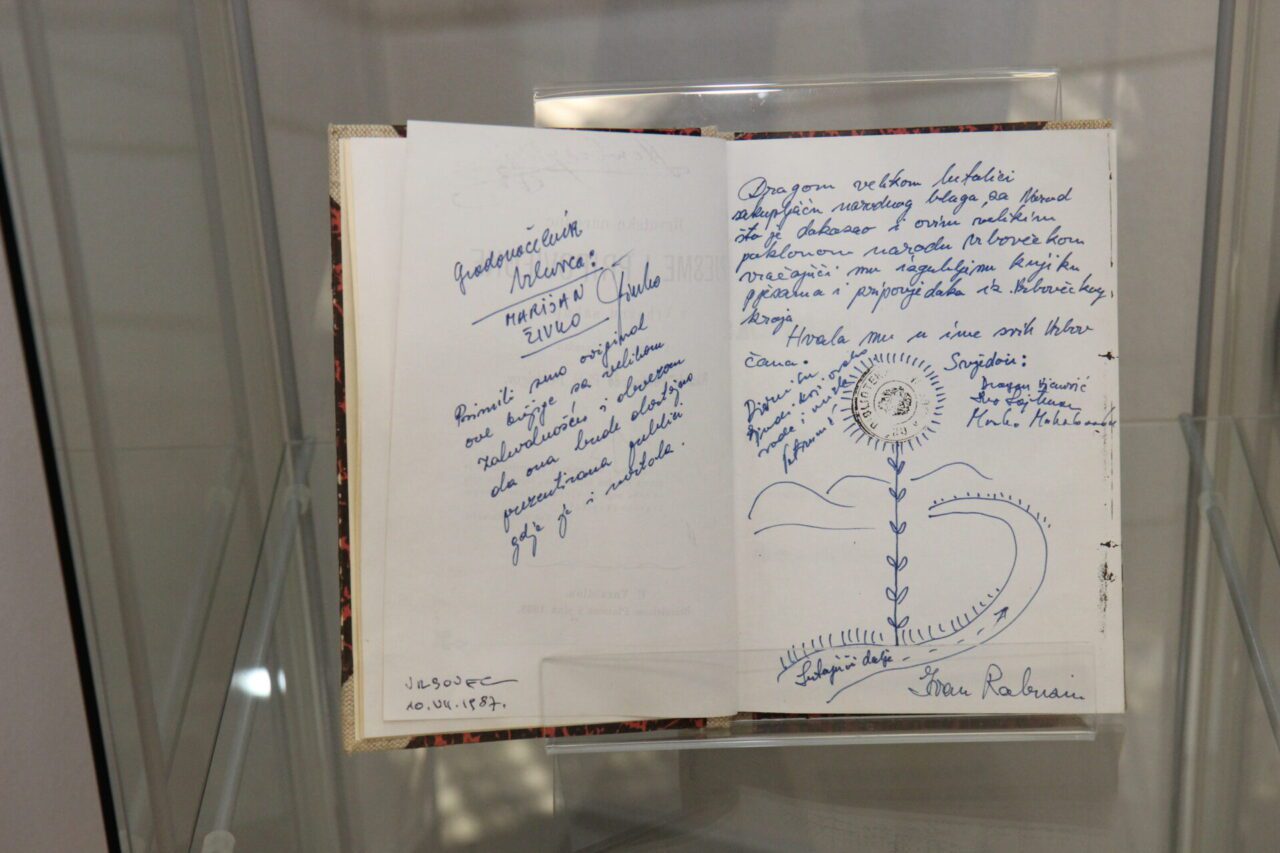 Gradonačelnik
Vrbovca:
MARIJAN
ŽIVKO
Živko
Primili smo original
ove knjige sa velikom
zahvalnošću i obvezom
da ona bude dostojno
prezentirana publici
gdje je i nastala.
VRBOVEC
10. VII. 1987.
Dragom velikom lutalici
sakupljaču narodnog blaga, za Narod
što je dokazao i ovim velikim
poklonom narodu Vrbovečkom
vraćajući mu izgubljenu knjiku
pjesama i pripovjedaka iz Vrbovečkog
kraja
Hvala mu u ime svih Vrbov
čana.
Svjedoci:
Dragan
Ivo
Marko
Divni su
ljudi koji ovako
rade i
BIBLIOTEKA
Lutajući dalje
Ivan Rabuzin